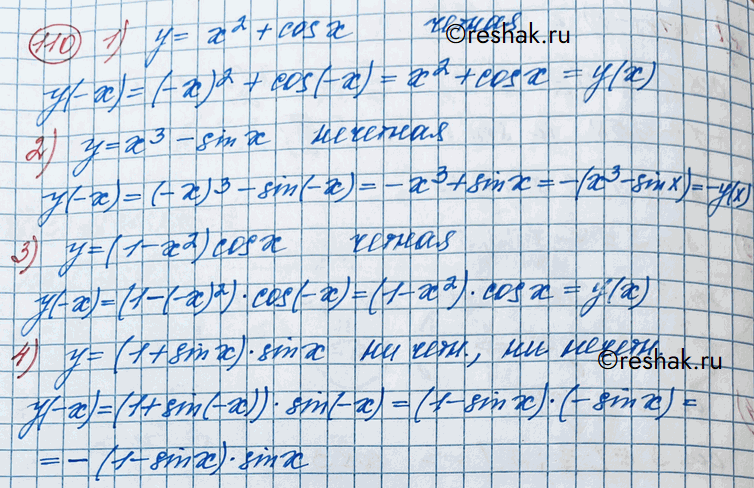 110 1) y = x² + cos x четная
©reshak.ru
y(-x) = (-x)² + cos(-x) = x² + cos x = y(x)
2) y = x³ - sin x нечетная
y(-x) = (-x)³ - sin(-x) = -x³ + sin x = -(x³ - sin x) = -y(x)
3) y = (1-x²) cos x четная
y(-x) = (1-(-x)²) · cos(-x) = (1-x²) · cos x = y(x)
4) y = (1+sin x) · sin x ни четн., ни нечетн.
©reshak.ru
y(-x) = (1+sin(-x)) · sin(-x) = (1-sin x) · (-sin x) =
= - (1-sin x) · sin x